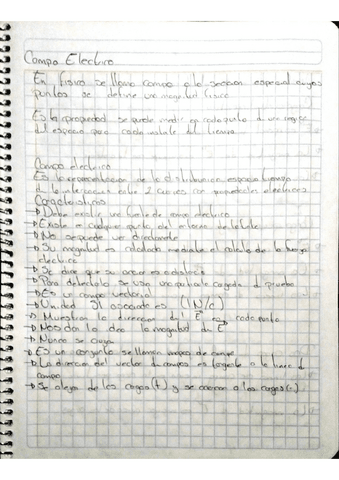 Campo Electrico
En fisica se llama campo a la seccion espacial cuyos
puntos se define una magnitud fisica
Es la propiedad se puede medir en cada punto d una region
d l espacio para cada instante d l tiempo
Campo electrico
Es la representacion de la distribucion espacio tiempo
d la interaccion entre 2 cuerpos con propiedades electricas
Caracteristicas
→ Debe existir una fuente de campo electrico
→ Existe en cualquier punto del entorno de la fuente
→ No se puede ver directamente
→ Su magnitud es calculada mediante el calculo de la fuerza
electrica
→ Se dice que su accion es a distancia
→ Para detectarlo se usa una particula cargada d prueba
→ Es un campo vectorial
→ Unidad SI asociada es (1 N/C)
→ Muestran la direccion d l E en cada punto
→ Nos dan la idea la magnitud d E
→ Nunca se
→ Es un conjunto se llaman mapas de campo
→ La direccion del vector d campo es tangente a la linea d
campo
→ Se aleja de las cargas (+) y se acercan a las cargas (-)